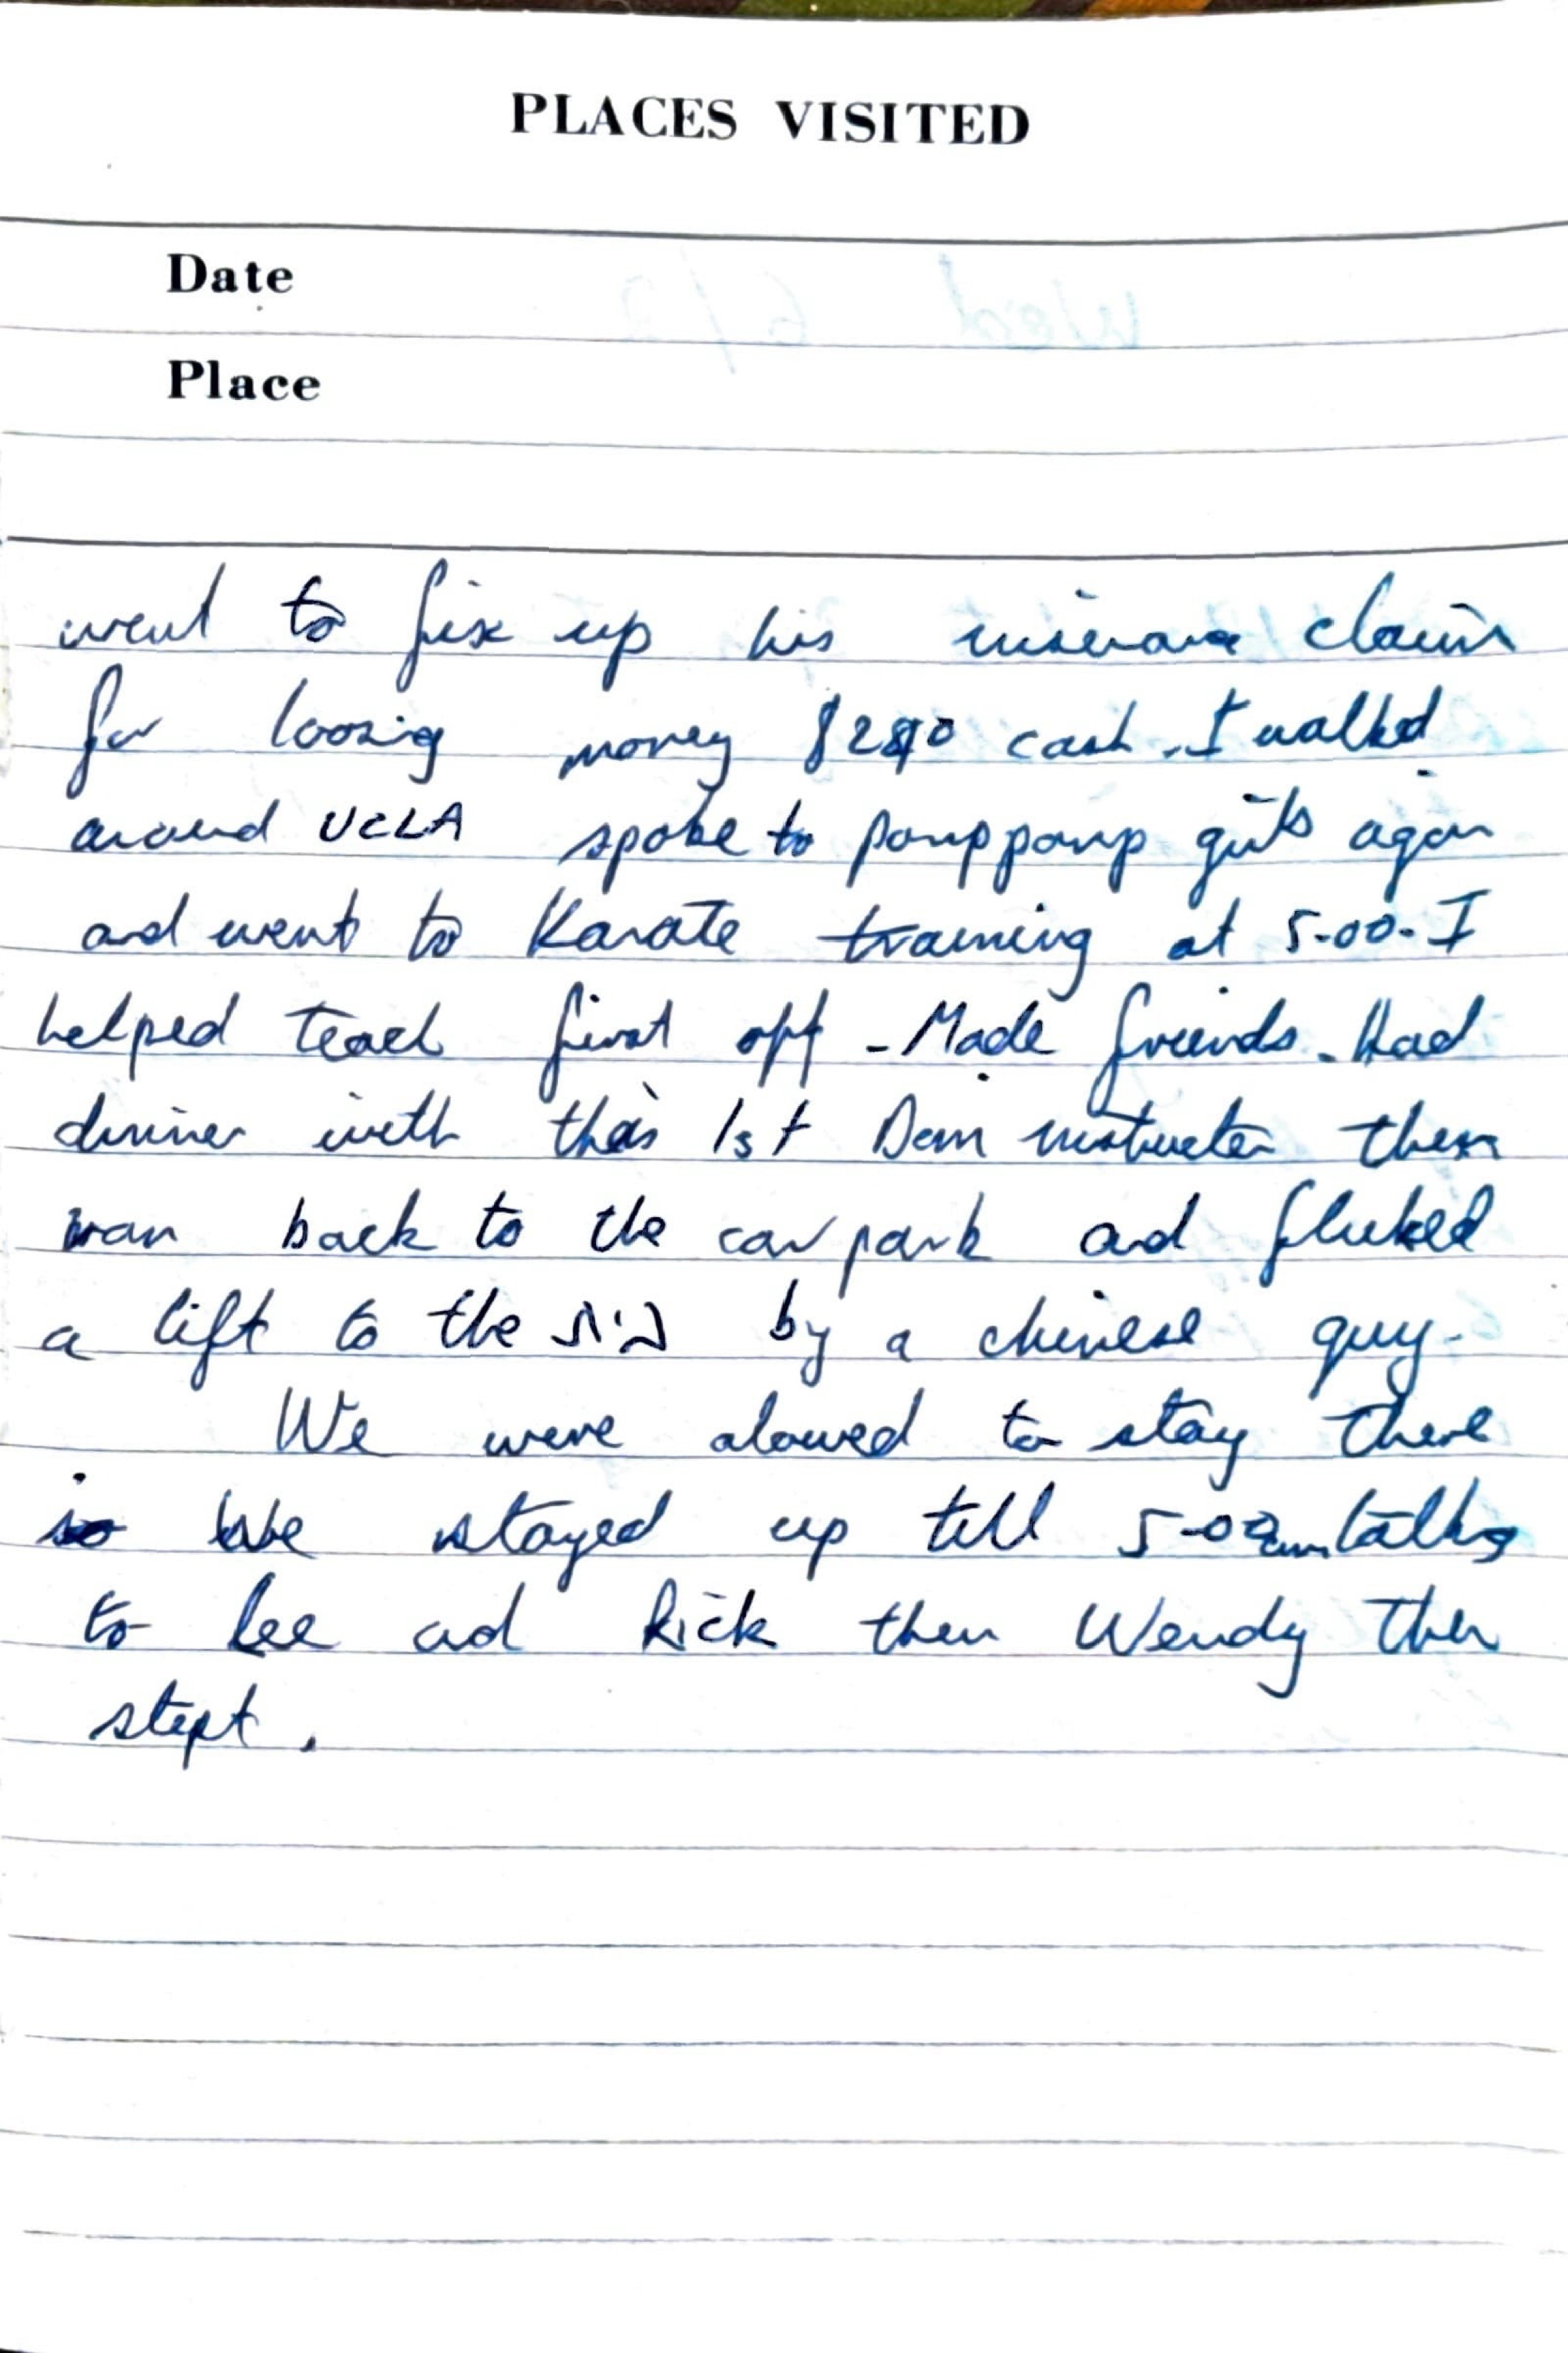 PLACES VISITED
Date
Place
went to fix up his insurance claim
for loosing money $280 cash. I walked
around UCLA spoke to pomppomp girls again
and went to Karate training at 5-00. I
helped teach first off - Made friends. Had
dinner with this 1st Dan instructer then
ran back to the car park and fluked
a lift to the בית by a chinese guy.
We were alowed to stay there
so We stayed up till 5-00am talking
to Lee and Rick then Wendy then
slept.